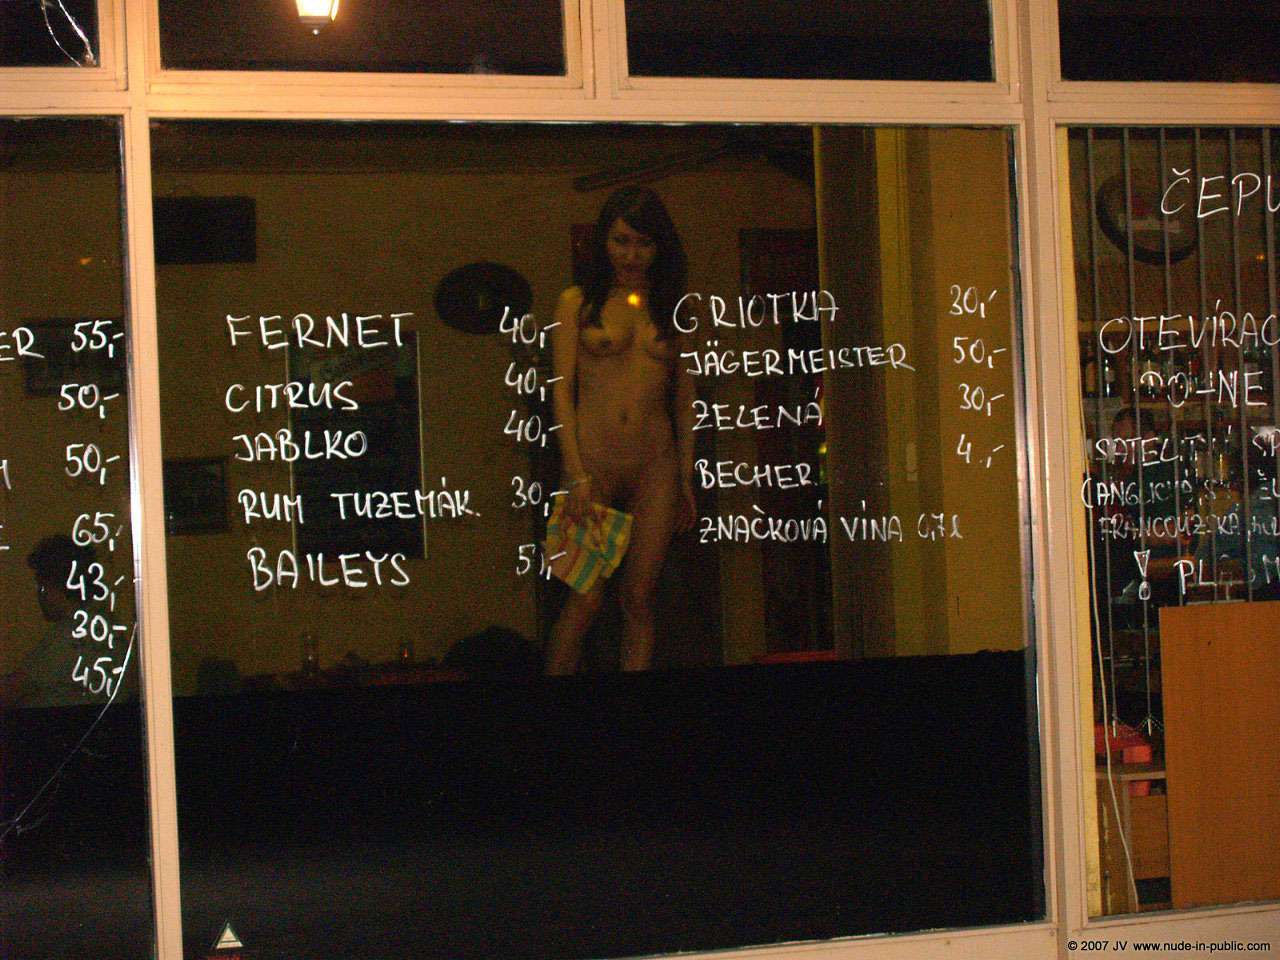 ER 55,-
50,-
50,-
65,-
43,-
30,-
45,-
FERNET 40,-
CITRUS 40,-
JABLKO 40,-
RUM TUZEMÁK. 30,-
BAILEYS
GRIOTKA 30,-
JÄGERMEISTER 50,-
ZELENÁ 30,-
BECHER.
ZNAČKOVÁ VÍNA 0,7l
ČEPU
OTEVÍRAC
© 2007 JV www.nude-in-public.com